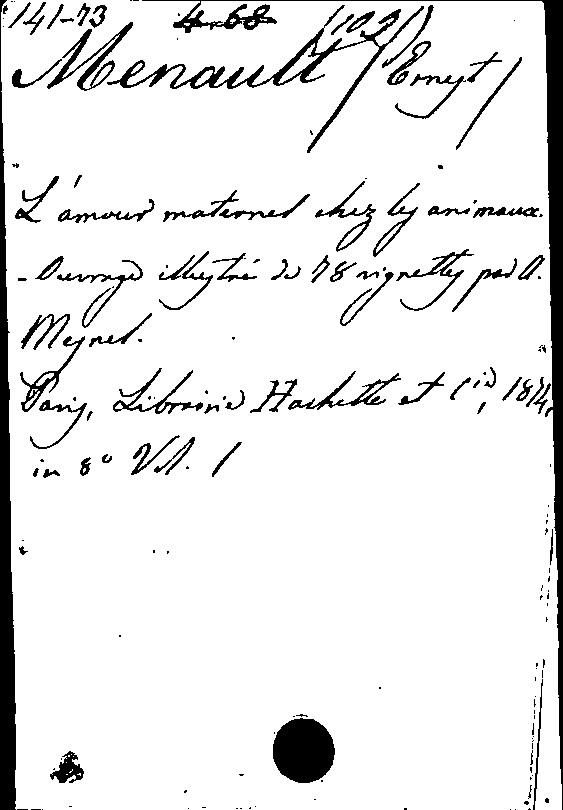 141-73 4-68 (102)
Menault / Ernest /
L'amour maternel chez les animaux.
- Ouvrage illustré de 78 vignettes par A.
Mesnel.
Paris, Librairie Hachette et Cie, 1874,
in 8° Vol. 1